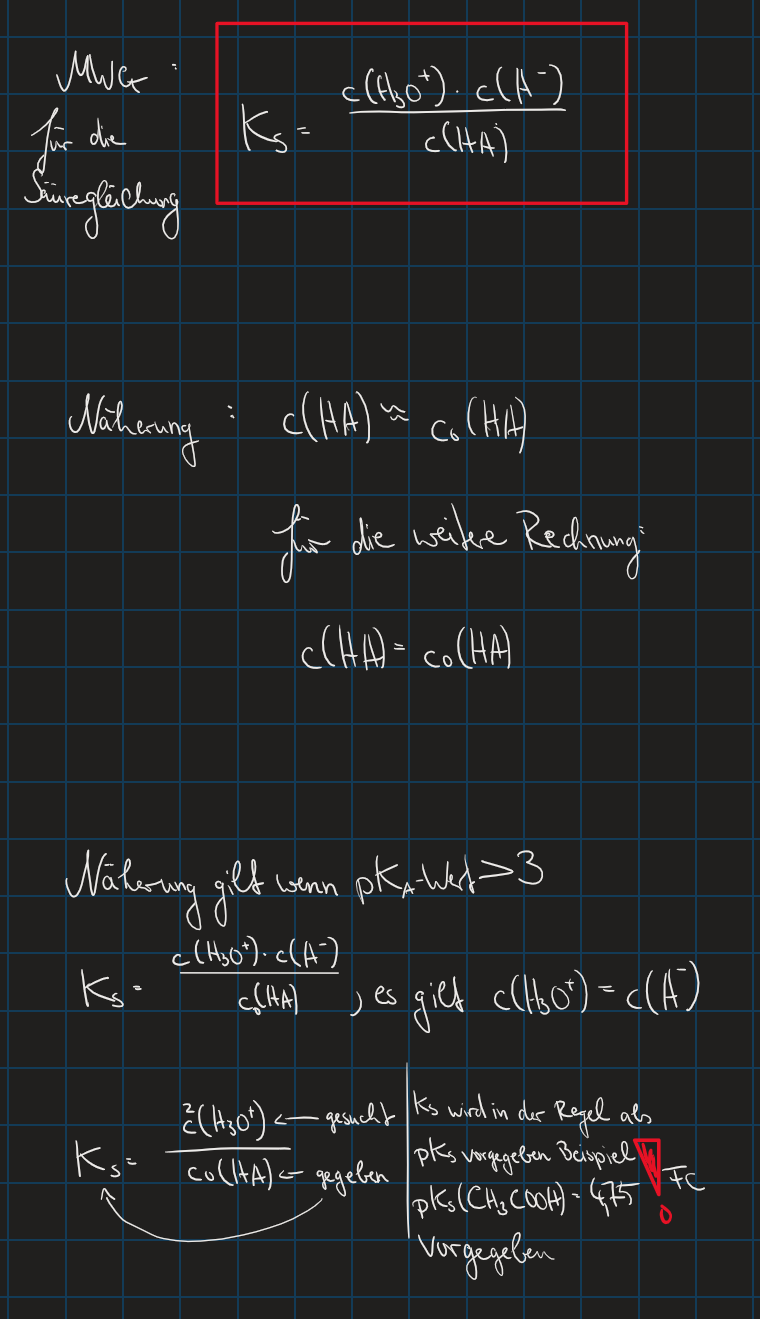 MWG :
für die
Säuregleichung
Ks = c(H₃O⁺) · c(A⁻) / c(HA)
Näherung : c(HA) ≈ c₀(HA)
für die weitere Rechnung:
c(HA) = c₀(HA)
Näherung gilt wenn pKA-Wert > 3
Ks = c(H₃O⁺) · c(A⁻) / c₀(HA) , es gilt c(H₃O⁺) = c(A⁻)
Ks = c²(H₃O⁺) / c₀(HA)
← gesucht
← gegeben
Ks wird in der Regel als
pKs vorgegeben Beispiel
pKs(CH₃COOH) = 4,75 FC
vorgegeben